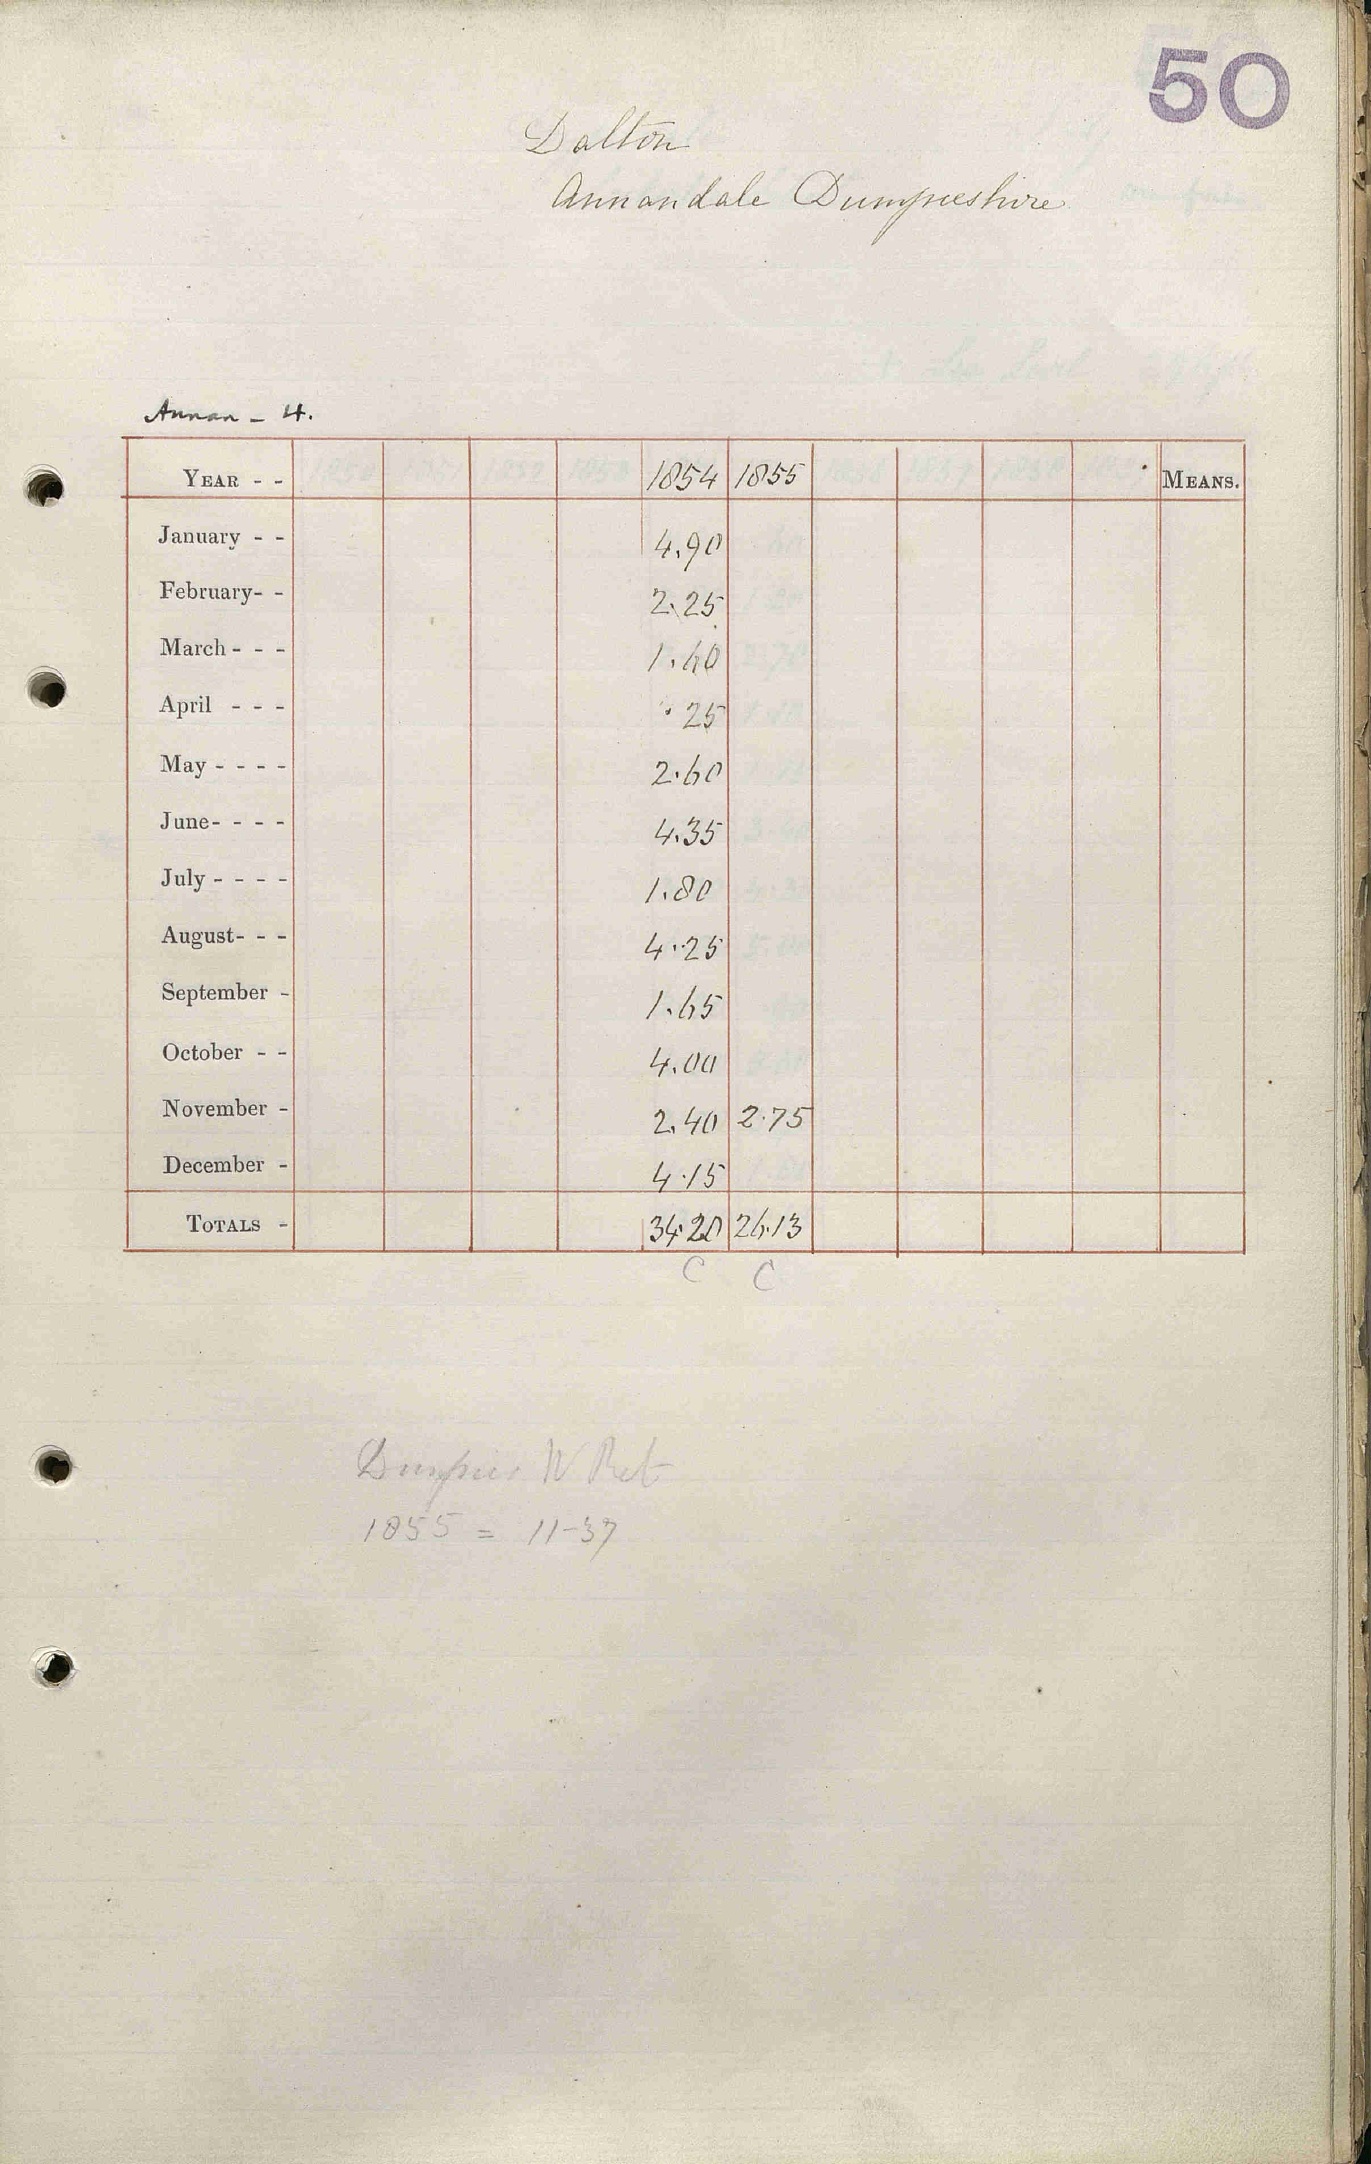 50
Dalton
Annandale Dumfriesshire
Annan - 4.
YEAR - - 1854 1855 MEANS.
January - - 4.90
February- - 2.25
March - - - 1.60
April - - - .25
May - - - - 2.60
June- - - - 4.35
July - - - - 1.80
August- - - 4.25
September - 1.65
October - - 4.00
November - 2.40 2.75
December - 4.15
TOTALS - 34.20 26.13
C C
Dumfries W Ret
1855 = 11-37